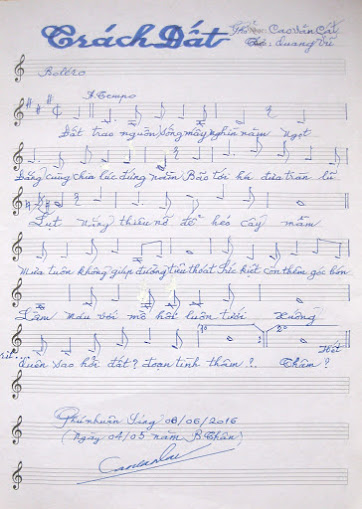 Trách Đất
Thơ: Cao Văn Cát
Nhạc: Quang Vũ
Boléro
A Tempo
Đất trao nguồn sống mấy nghìn năm ngọt
Đắng cùng chia lúc đúng nằm Bão tới hè đưa tràn lũ
Lụt nắng thiêu nở để héo cây mầm
Mưa tuôn không giúp đường tiêu thoát kiệt còn thêm gốc
Tấm máu với mồ hôi luôn tưới xuống
rit... Quên sao hỡi đất? đoạn tình thâm? Thâm?
1º 2º Hết
Phú nhuận 08/06/2016
(Ngày 04/05 năm B Thân)